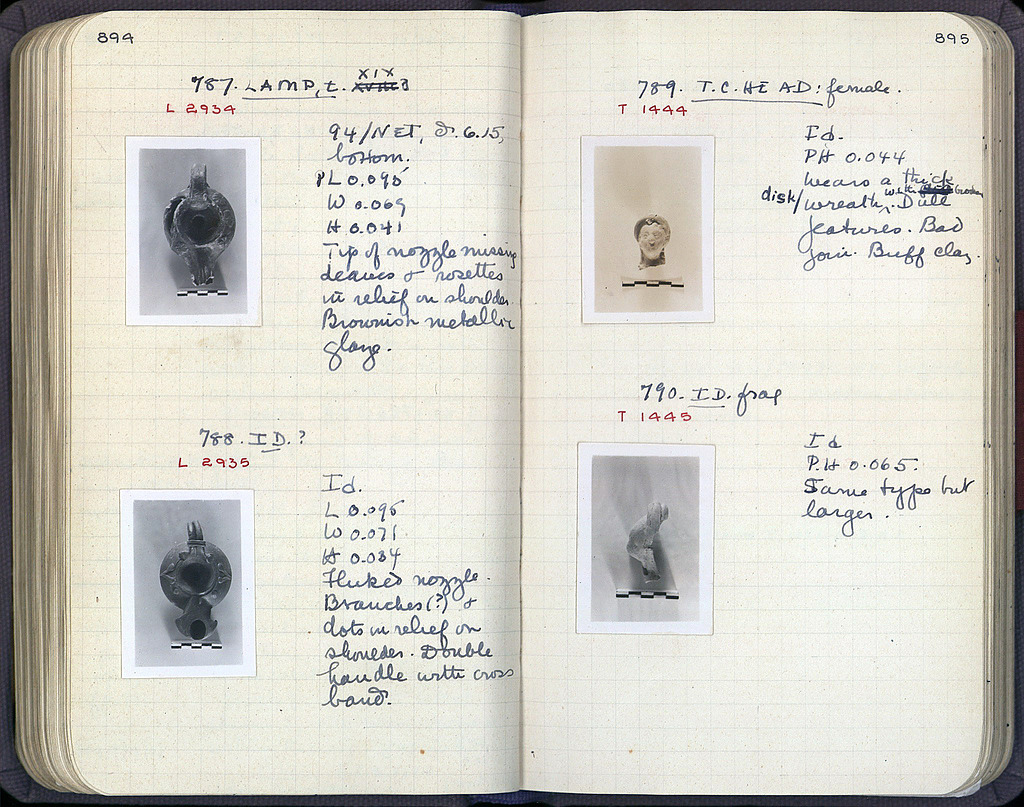 894
787. LAMP, t. XIX ?
L 2934
94/NET, d. 6.15,
bottom.
PL 0.095
W 0.069
H 0.041
Tip of nozzle missing
Leaves & rosettes
in relief on shoulder.
Brownish metallic
glaze.
788. ID. ?
L 2935
Id.
L 0.095
W 0.071
H 0.034
Fluked nozzle.
Branches (?) &
dots in relief on
shoulder. Double
handle with cross
band.
895
789. T.C. HEAD: female.
T 1444
Id.
PH 0.044
Wears a thick
disk/wreath. Dull
features. Bad
join. Buff clay.
790. ID. frag
T 1445
Id
P.H 0.065.
Same type but
larger.